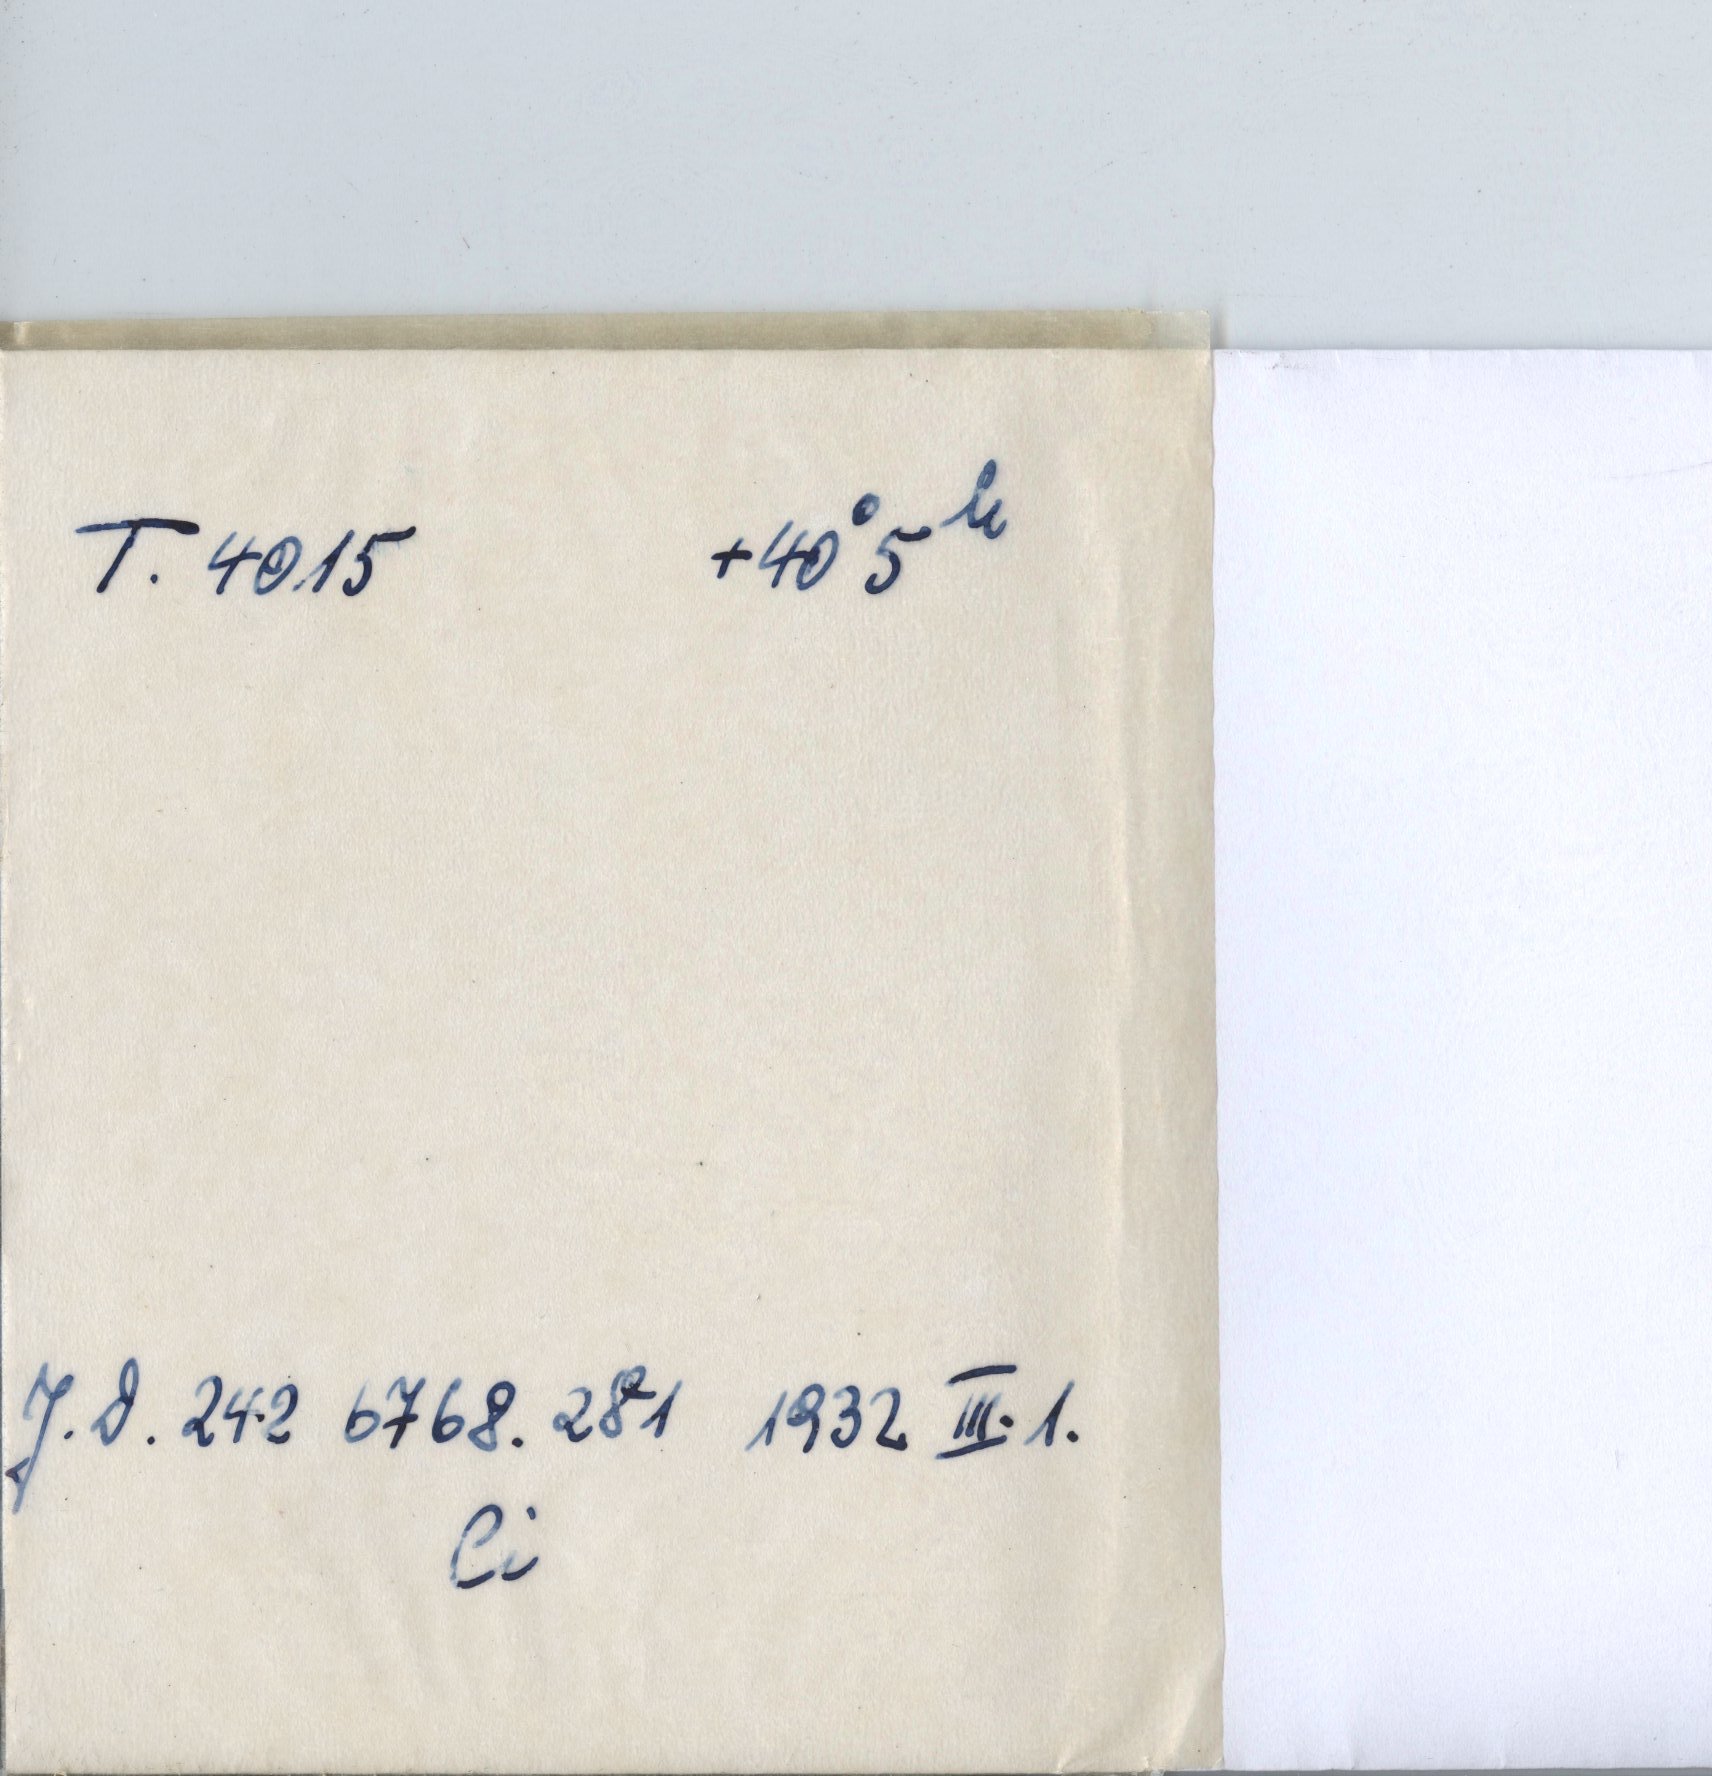 T. 4015 +40° 5ʰ
J.D. 242 6768. 281 1932 III. 1.
Ci